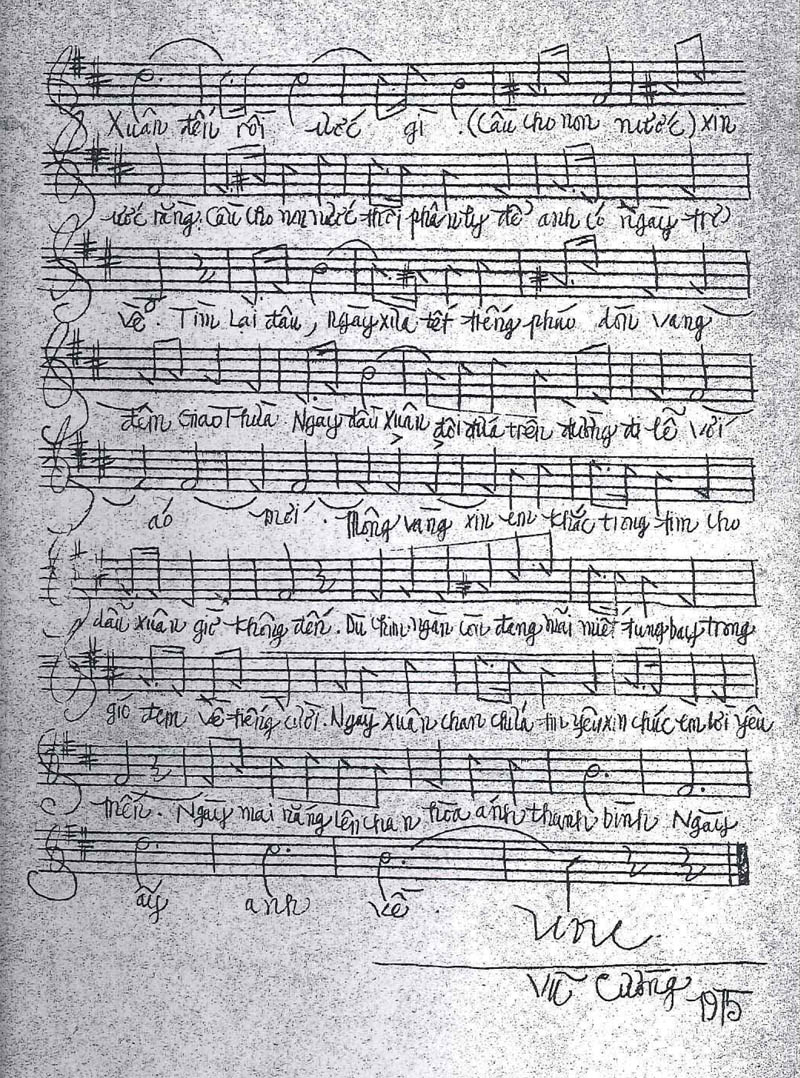 Xuân đến rồi ước gì . (Cầu cho non nước) xin
ước rằng. Cầu cho non nước thôi phân ly để anh có ngày trở
về. Tìm lại đâu, ngày xưa tết tiếng pháo dồn vang
đêm Giao Thừa Ngày đầu Xuân đôi đứa trên đường đi lễ với
áo mới. Mộng vàng xin em khắc trong tim cho
dẫu xuân giờ không đến. Dù chim ngàn còn đang mãi miết tung bay trong
gió đem về tiếng cười. Ngày xuân chan chứa tin yêu xin chúc em lời yêu
mến. Ngày mai nắng lên chan hòa ánh thanh bình Ngày
ấy anh về
Vũ Cường 1975